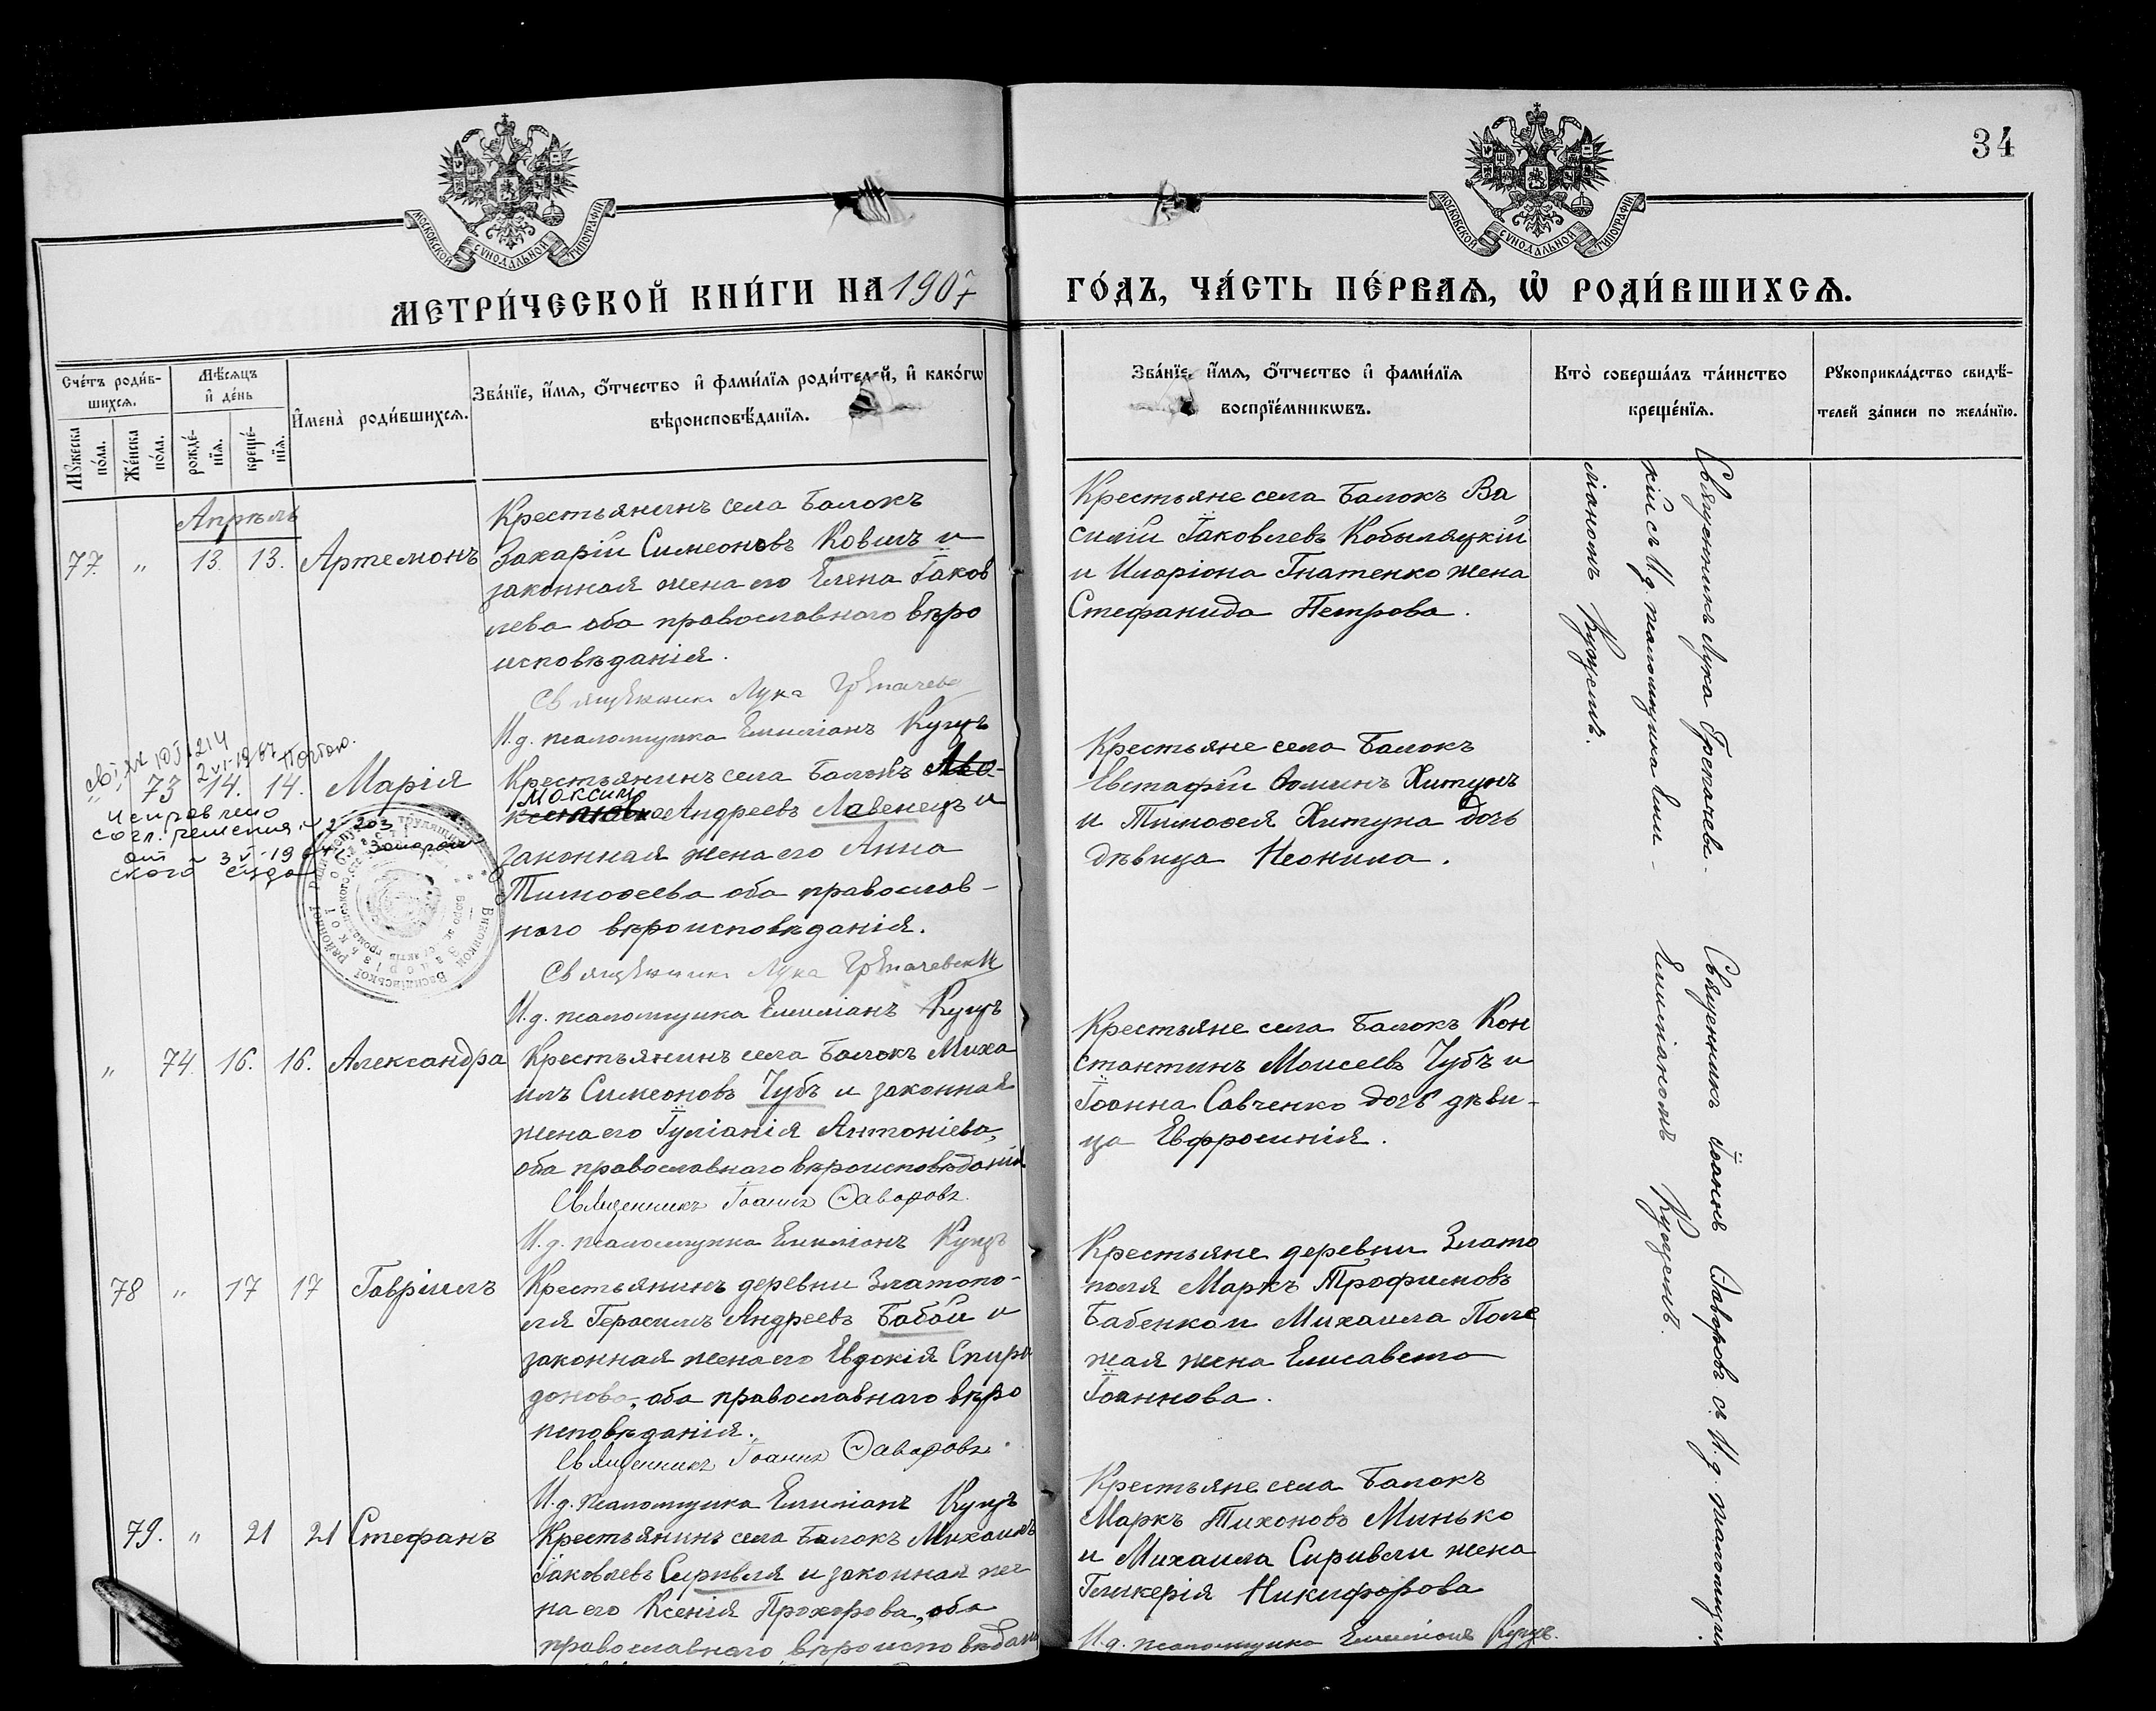 34
МОСКОВСКОЙ СѴНОДАЛЬНОЙ ТИПОГРАФІИ
МОСКОВСКОЙ СѴНОДАЛЬНОЙ ТИПОГРАФІИ
МЕТРИ́ЧЕСКОЙ КНИ́ГИ НА 1907
ГО́ДЪ, ЧА́СТЬ ПЕ́РВАѦ, Ѡ҆ РОДИ́ВШИХСѦ.
Сче́тъ роди́в-
шихсѧ.
Мꙋ́жеска по́ла.
Же́нска по́ла.
Мѣ́сѧцъ и҆ де́нь
рожде́-нїѧ.
креще́-нїѧ.
И҆мена̀ роди́вшихсѧ.
Зва́нїе, и҆́мѧ, ѻ҆́тчество и҆ фами́лїѧ роди́телей, и҆ како́гѡ
вѣроисповѣ́данїѧ.
Зва́нїе, и҆́мѧ, ѻ҆́тчество и҆ фами́лїѧ
воспрїе́мникѡвъ.
Кто̀ соверша́лъ та́инство
креще́нїѧ.
Рꙋкоприкла́дство свидѣ́-
телей за́писи по жела́нїю.
Апрѣль
77. " 13. 13. Артемонъ
Крестьянинъ села Балокъ
Захарій Симеоновъ Ковилъ и
законная жена его Елена Іаков
лева оба православнаго вѣро
исповѣданія.
Священникъ Лука
И.д. псаломщика Емиліанъ Куцъ
Крестьяне села Балокъ Ва
силій Іаковлевъ Кобыляцкій
и Иларіона Гнатенко жена
Стефанида Петрова.
" 73 14. 14. Марія
Исправлено
согл. решения № 2-203
от 3 V-19
ского суда
Крестьянинъ села Балокъ
Максимъ
Андреевъ Лавенецъ и
законная жена его Анна
Тимоѳеева оба православ-
наго вѣроисповѣданія.
Священникъ Лука
И.д. псаломщика Емиліанъ Куцъ
Крестьяне села Балокъ
Евстафій Ѳоминъ Хитунъ
и Тимоѳея Хитуна дочь
дѣвица Неонила.
" 74. 16. 16. Александра
Крестьянинъ села Балокъ Миха
илъ Симеоновъ Чубъ и законная
жена его Іуліанія Антоніева,
оба православнаго вѣроисповѣданія
Священникъ Іоаннъ
И.д. псаломщика Емиліанъ Куцъ
Крестьяне села Балокъ Кон
стантинъ Моисеевъ Чубъ и
Іоанна Савченко дочь дѣви-
ца Евфросинія.
78 " 17 17 Гавріилъ
Крестьянинъ деревни Златопо-
ля Герасимъ Андреевъ Бабай и
законная жена его Евдокія Спири
донова, оба православнаго вѣро
исповѣданія.
Священникъ Іоаннъ
И.д. псаломщика Емиліанъ Куцъ
Крестьяне деревни Злато
поля Маркъ Трофимовъ
Бабенко и Михаила Поле
жая жена Елисавета
Іоаннова.
79. " 21 21 Стефанъ
Крестьянинъ села Балокъ Михаилъ
Іаковлевъ Сиривля и законная же
на его Ксенія Прохорова, оба
православнаго вѣроисповѣдан
Крестьяне села Балокъ
Маркъ Тихоновъ Минько
и Михаила Сиривли жена
Гликерія Никифорова
И.д. псаломщика Емиліанъ Куцъ.
Священникъ Лука
кій съ И.д. псаломщика Еми-
ліаномъ Куцемъ.
Священникъ Іоаннъ съ И.д. псаломщика
Емиліаномъ Куцемъ.